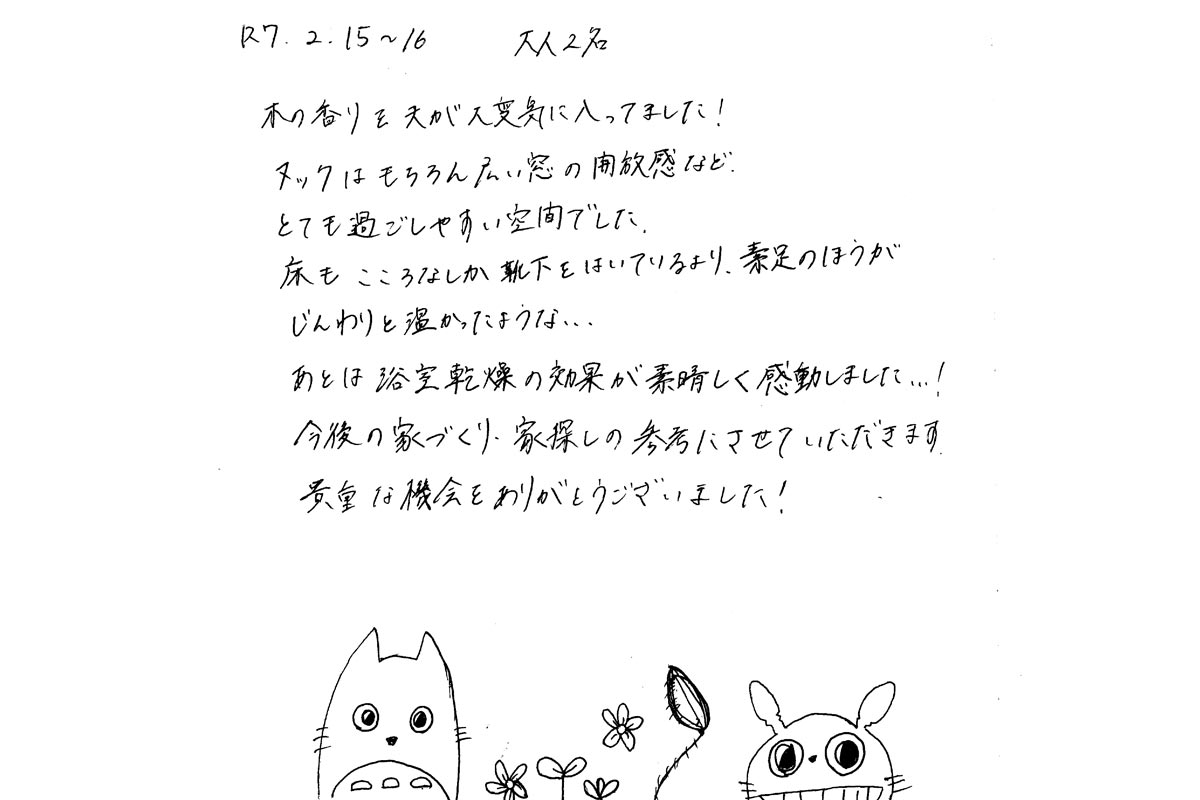 R7.2.15〜16 大人2名
木の香りを夫が大変気に入ってました!
ヌックはもちろん広い窓の開放感など、
とても過ごしやすい空間でした。
床もこころなしか靴下をはいているより、素足のほうが
じんわりと温かったような...
あとは浴室乾燥の効果が素晴しく感動しました...!
今後の家づくり・家探しの参考にさせていただきます
貴重な機会をありがとうございました!